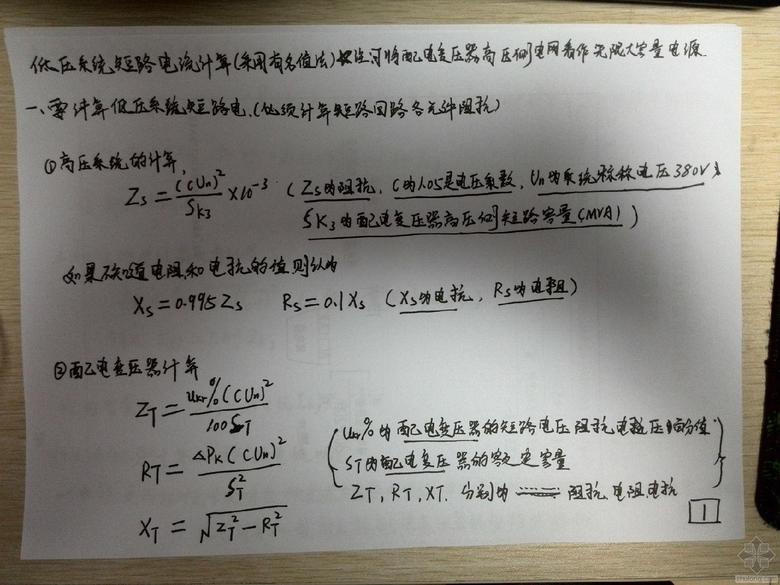 低压系统短路电流计算(采用有名值法)此法可将配电变压器高压侧电网看作无限大容量电源
一、要计算低压系统短路电,(必须计算短路回路各元件阻抗)
①高压系统的计算,
Zs=(CUn)²/SK3×10⁻³ (Zs为阻抗,C为1.05是电压系数,Un为系统标称电压380V,
SK3为配电变压器高压侧短路容量(MVA))
如果不知道电阻和电抗的值则认为
Xs=0.995Zs Rs=0.1Xs (Xs为电抗,Rs为电阻)
②配电变压器计算
ZT=Ukr%(CUn)²/100ST
RT=ΔPK(CUn)²/ST²
XT=√ZT²-RT²
Ukr%为配电变压器的短路电压阻抗电压百分值
ST为配电变压器的额定容量
ZT,RT,XT.分别为 阻抗 电阻 电抗
1